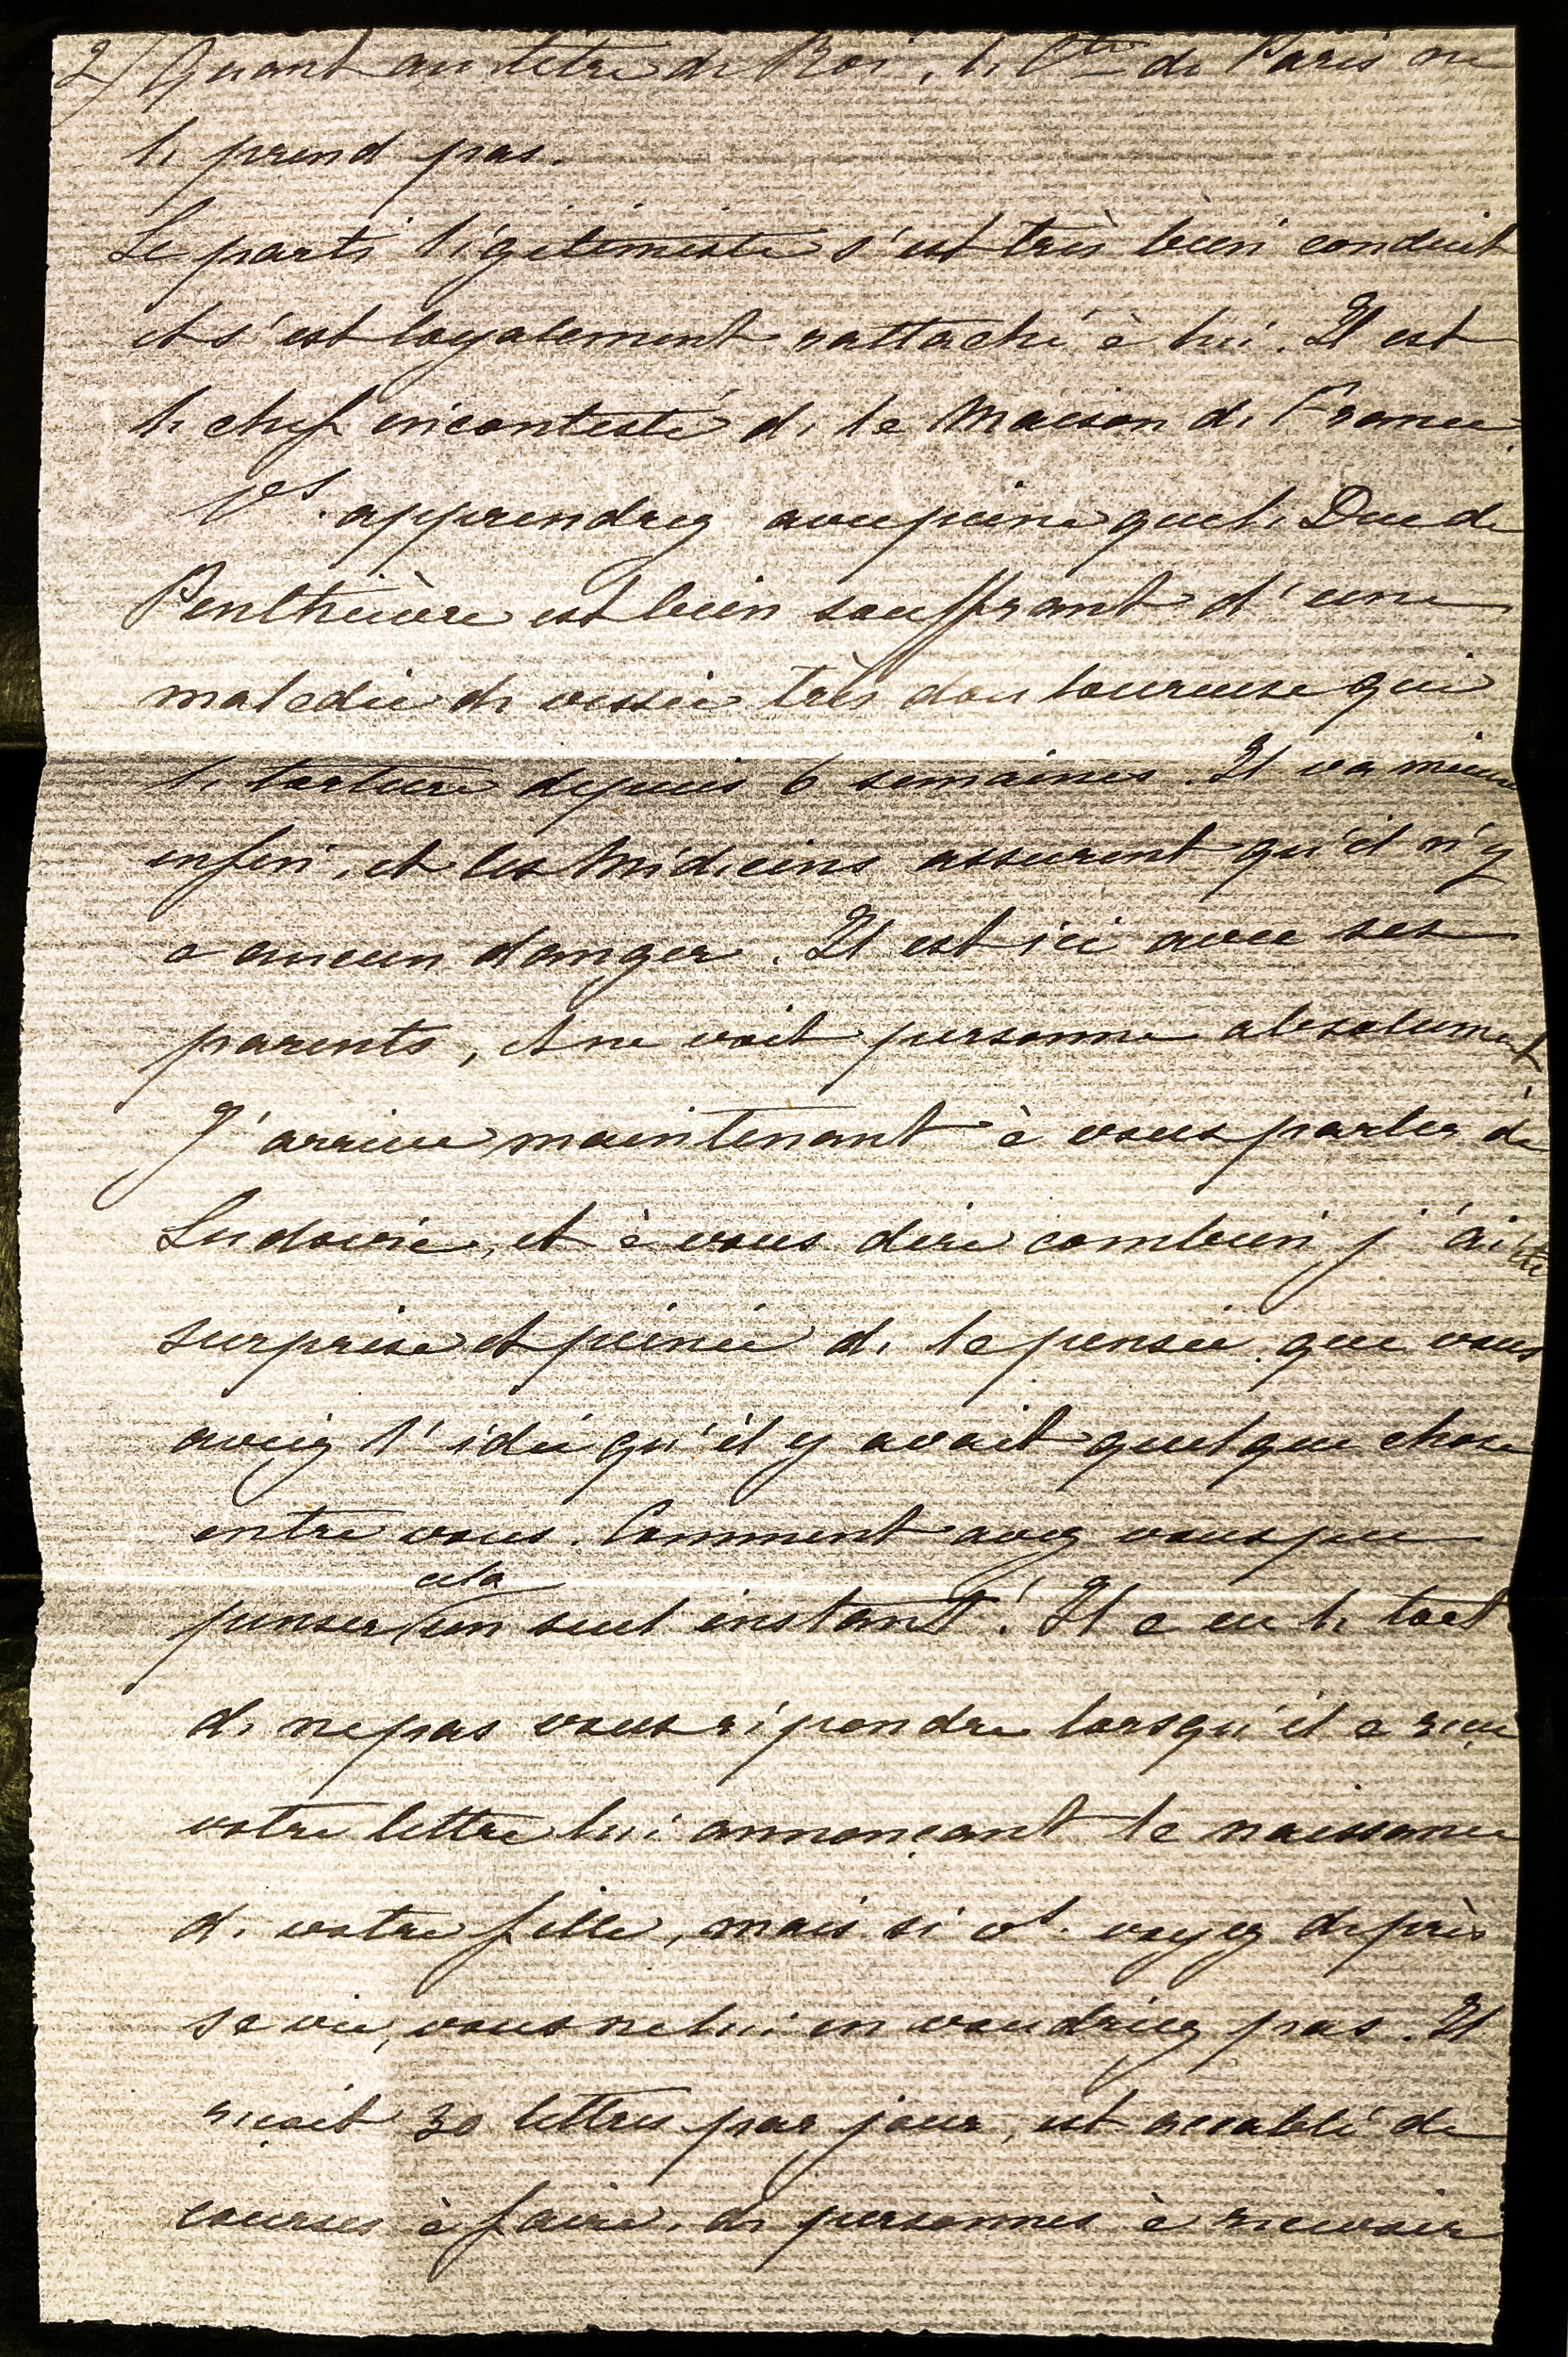 2) Quant au titre de Roi, le Cte de Paris ne
le prend pas.
Le parti légitimiste s'est très bien conduit
et s'est loyalement rattaché à lui. Il est
le chef incontesté de la Maison de France.
Vs. apprendrez avec peine que le Duc de
Penthièvre est bien souffrant d'une
maladie de vessie très douloureuse qui
le torture depuis 6 semaines. Il va mieux
enfin, et les Médecins assurent qu'il n'y
a aucun danger. Il est ici avec ses
parents, et ne voit personne absolument
J'arrive maintenant à vous parler de
Ludovic, et à vous dire combien j'ai été
surprise et peinée de la pensée que vous
aviez l'idée qu'il y avait quelque chose
entre vous. Comment avez vous pu
penser cela un seul instant! Il a eu le tort
de ne pas vous répondre lorsqu'il a reçu
votre lettre lui annonçant la naissance
de votre fille, mais si vs. voyez de près
sa vie, vous ne lui en voudriez pas. Il
reçoit 30 lettres par jour, est accablé de
courses à faire, de personnes à recevoir